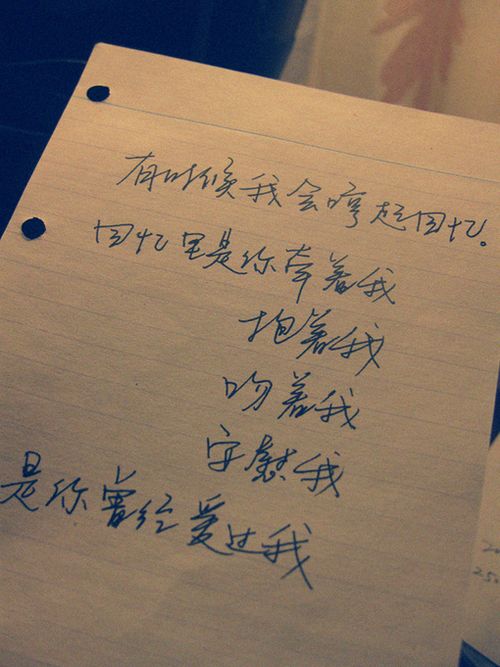 有时候我会哼起回忆。
回忆里是你牵着我
抱着我
吻着我
安慰我
是你曾经爱过我